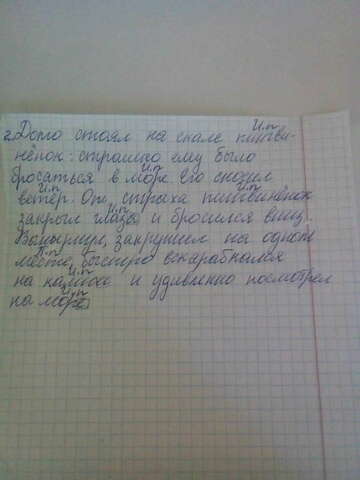 И.п
2. Долго стоял на скале пингви-
нёнок: страшно ему было
И.п
бросаться в море. Его сносил
И.п И.п
ветер. От страха пингвинёнок
И.п
закрыл глаза и бросился вниз.
Вынырнул, закружил на одном
И.п
месте, быстро вскарабкался
И.п
на камень и удивленно посмотрел
И.п
на море